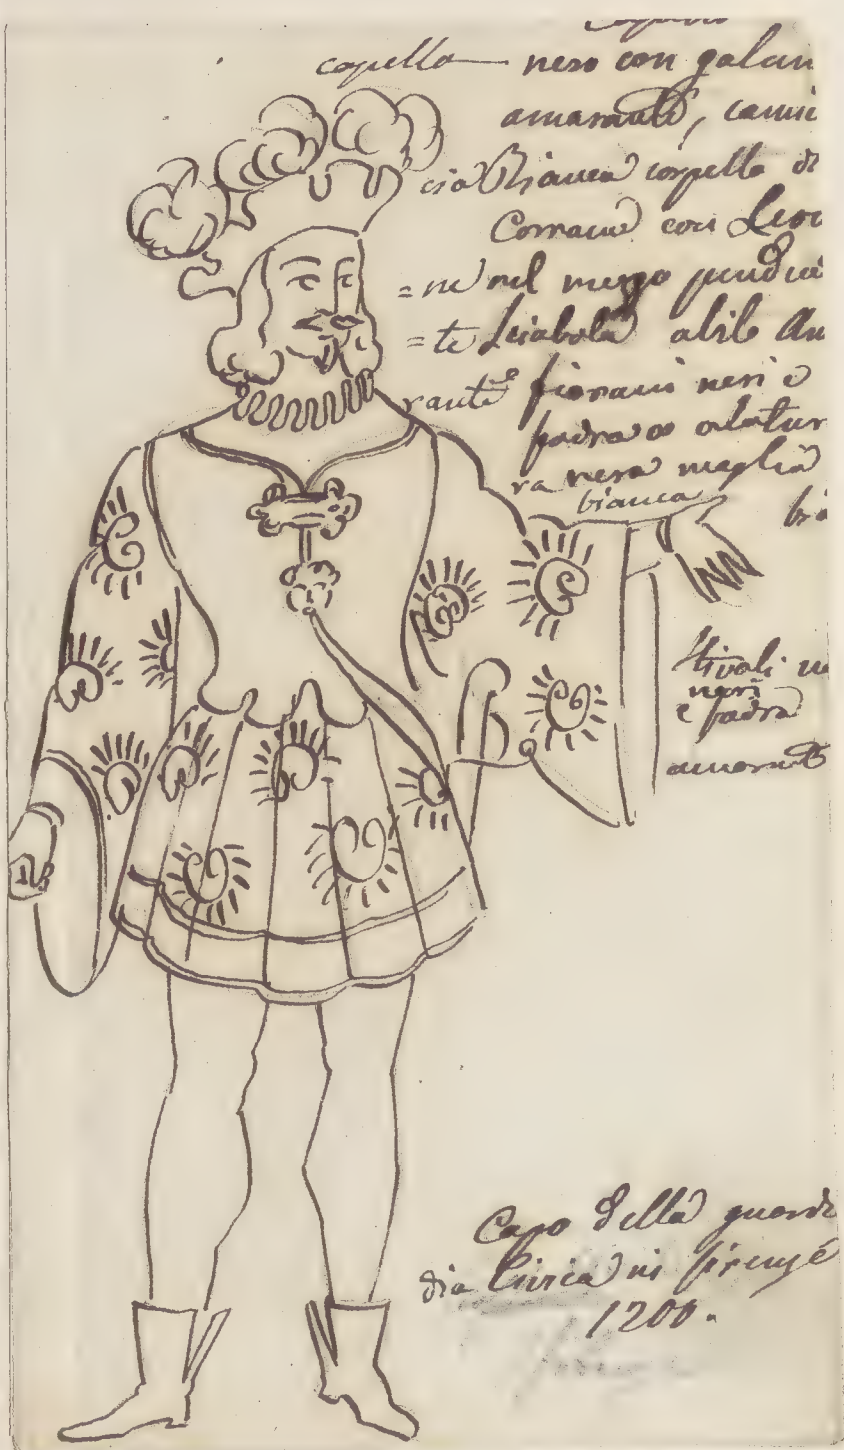 capello nero con galan
amarante, cami
cia Bianca corpetto di
Corame con Leo
=ne nel mezzo penden
=te Sciabola abito Am
rante fiorami neri e
fodra o alatur
ra nera maglia
bianca
stivali
neri
e fodra
amarante
Capo della guardi
dia Civica in firenze
1200.